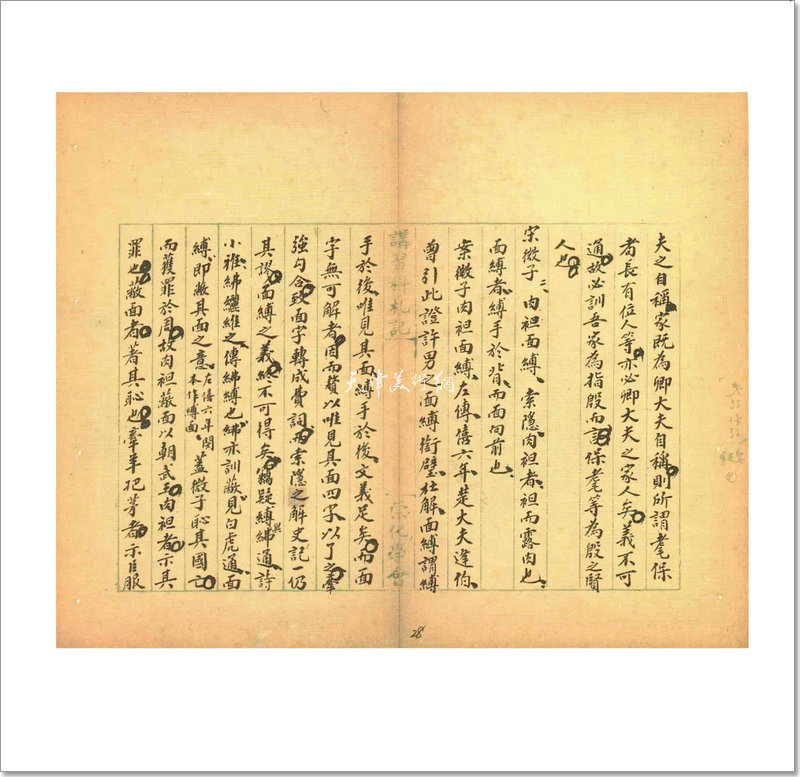 夫之自稱家既為卿大夫自稱則所謂耄保
者長有位人等亦必卿大夫之家人矣義不可
通故必訓吾家為指殷而訓保耄等為殷之賢
人也
宋微子、肉袒面縛、索隱肉袒者、袒而露肉也、
面縛者、縛手於背、而面向前也、
案微子肉袒面縛、左傳僖六年楚大夫逢伯、
曾引此證許男之面縛銜璧、杜解、面縛謂縛
講習科札記
崇化學會
手於後、唯見其面、縛手於後、文義足矣、而面
字無可解者、因而贅以唯見其面四字、以了之、牽
強勾合、致面字轉成費詞、而索隱之解史記一仍
其說、面縛之義、終不可得矣、竊疑縛與紼通、詩
小雅紼纚維之、傳紼縛也、紼亦訓蔽、見白虎通、面
縛、即蔽其面之意、左僖六年閩本作縛面、蓋微子恥其國亡
而獲罪於周、故肉袒蔽面以朝武王、肉袒者、示其
罪也、蔽面者、著其恥也、牽羊把茅者、示臣服
天津美術網
28